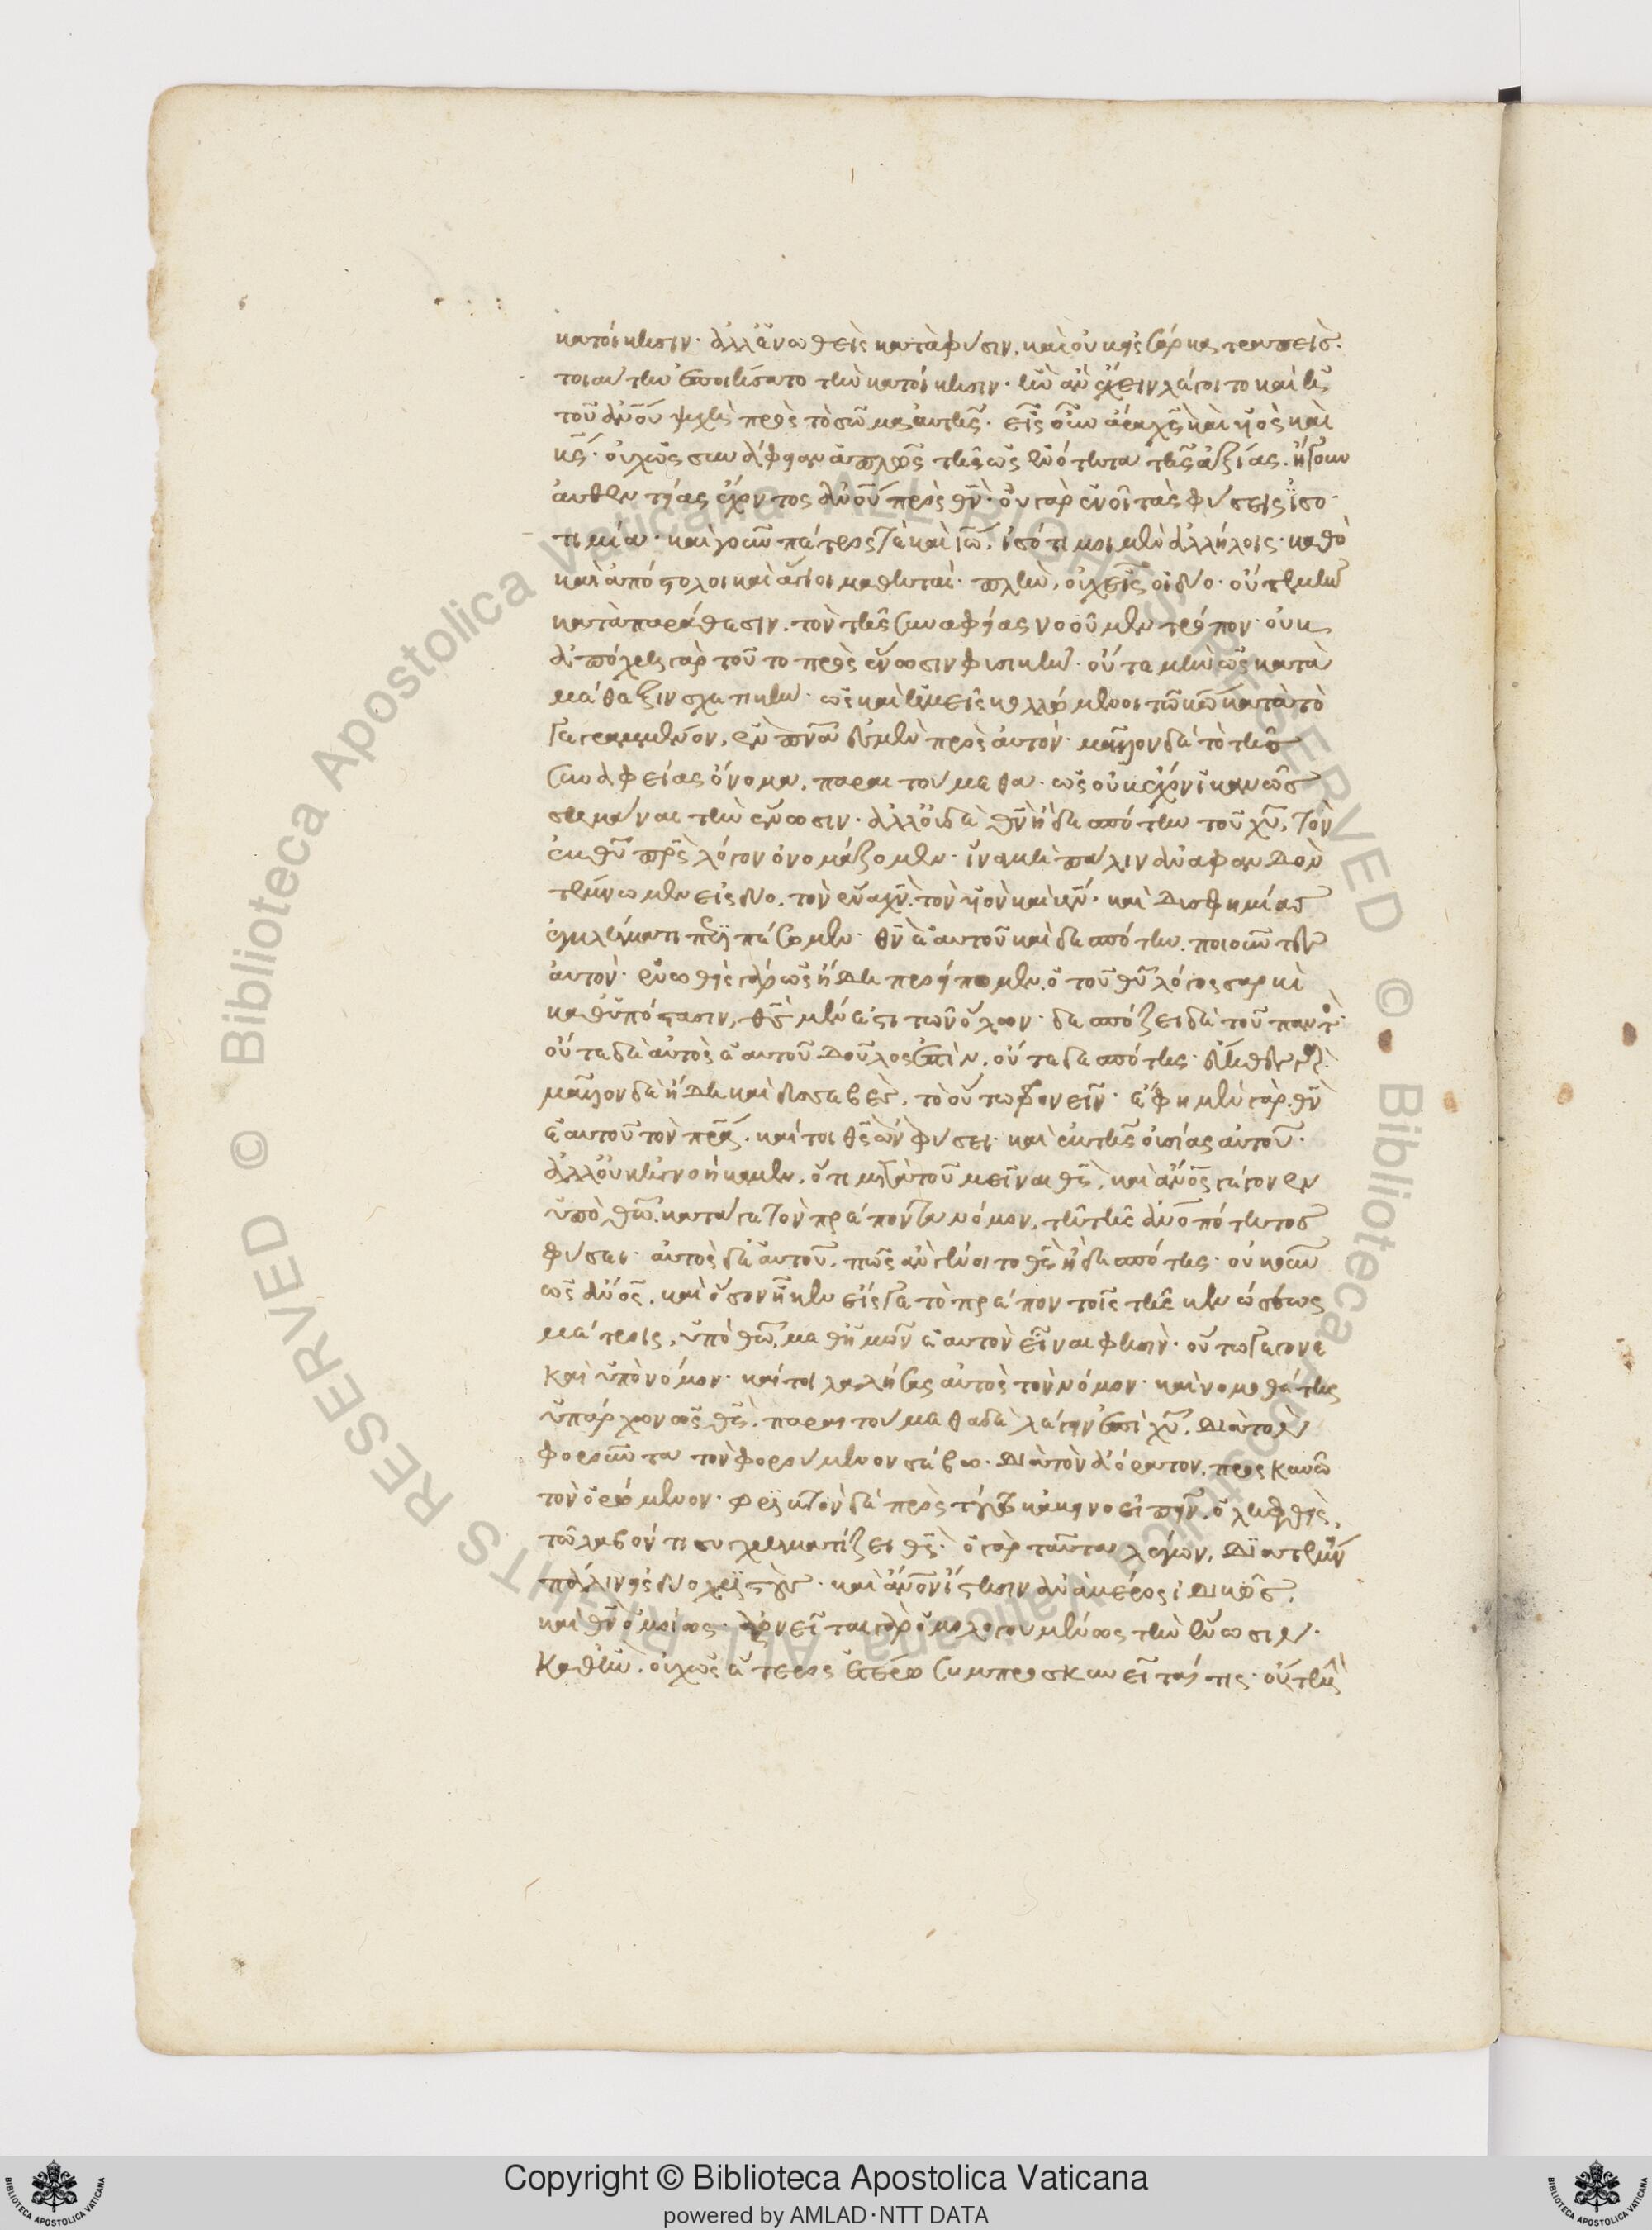 κατοίκησιν· ἀλλ' ἑνωθεὶς κατὰ φύσιν, καὶ οὐκ εἰς σάρκα τραπεὶς·
τοιαύτην ἐποιήσατο τὴν κατοίκησιν· ἣν ἂν ἔχειν λέγοιτο καὶ ἡ
τοῦ ἀνου ψυχὴ πρὸς τὸ σῶμα ἑαυτῆς· εἷς οὖν ἄρα χς καὶ υἱὸς καὶ
κς· οὐχ ὡς συνάφειαν ἁπλῶς τὴν ὡς ἑνότητα τῆς ἀξίας. ἤγουν
αὐθεντίας ἔχοντος ἀνου πρὸς θν· οὐ γὰρ ἑνοῖ τὰς φύσεις ἰσο
τιμία· καὶ γοῦν πέτρος τὲ καὶ ἰω, ἰσότιμοι μὲν ἀλλήλοις· καθὸ
καὶ ἀπόστολοι καὶ ἅγιοι μαθηταί· πλὴν, οὐχ εἷς οἱ δύο· οὔτε μὴν
κατὰ παράθεσιν. τὸν τῆς συναφείας νοοῦμεν τρόπον· οὐκ
ἀπόχρη γὰρ τοῦτο πρὸς ἕνωσιν φυσικήν· οὔτε μὴν ὡς κατὰ
μέθεξιν σχετικήν· ὡς καὶ ἡμεῖς κολλώμενοι τῶ κω κατὰ τὸ
γεγραμμένον, ἓν πνα ἐσμὲν πρὸς αὐτόν· μᾶλλον δὲ τὸ τῆς
συναφείας ὄνομα, παραιτούμεθα· ὡς οὐκ ἔχον ἱκανῶς
σημῆναι τὴν ἕνωσιν· ἀλλ' οὐδὲ θν ἢ δεσπότην τοῦ χυ, τὸν
ἐκ θυ πρς λόγον ὀνομάζομεν· ἵνα μὴ πάλιν ἀναφανδὸν
τέμνωμεν εἰς δύο. τὸν ἕνα χν. τὸν υἱὸν καὶ κν· καὶ δυσφημίας
ἐγκλήματι περιπέσωμεν· θν ἑαυτοῦ καὶ δεσπότην. ποιοῦντες
αὐτόν· ἑνωθεὶς γὰρ ὡς ἤδη προείπομεν. ὁ τοῦ θυ λόγος σαρκὶ
καθ' ὑπόστασιν, θς μέν ἐστι τῶν ὅλων· δεσπόζει δὲ τοῦ παντὸς·
οὔτε δὲ αὐτὸς ἑαυτοῦ δοῦλός ἐστιν. οὔτε δεσπότης·
μᾶλλον δὲ ἤδη καὶ δυσσεβὲς. τὸ οὕτω φρονεῖν· ἔφη μὲν γὰρ θν
ἑαυτοῦ τὸν πρα. καίτοι θς ὢν φύσει· καὶ ἐκ τῆς οὐσίας αὐτοῦ·
ἀλλ' οὐκ ἠγνοήκαμεν. ὅτι μετὰ τοῦ μεῖναι θς, καὶ ἄνος γέγονεν
ὑπὸ θω. κατά γε τὸν πρέποντα νόμον, τῆ τῆς ἀνοπότητος
φύσει· αὐτὸς δὲ ἑαυτοῦ. πῶς ἂν γένοιτο θς ἢ δεσπότης· οὐκοῦν
ὡς ἄνος. καὶ ὅσον ἧκεν εἴς γε τὸ πρέπον τοῖς τῆς κενώσεως
μέτροις, ὑπὸ θω μεθ' ἡμῶν ἑαυτὸν εἶναι φησὶν· οὕτω γέγονε
καὶ ὑπὸ νόμον· καίτοι λαλήσας αὐτὸς τὸν νόμον· καὶ νομοθέτης
ὑπάρχων ὡς θς. παραιτούμεθα δὲ λέγειν ἐπὶ χυ, διὰ τὸν
φοροῦντα τὸν φορούμενον σέβω· διὰ τὸν ἀόρατον. προσκυνῶ
τὸν ὁρώμενον· φρικτὸν δὲ πρὸς τούτω κἀκεῖνο εἰπεῖν. ὁ ληφθεὶς,
τῶ λαβόντι συγχρηματίζει θς· ὁ γὰρ ταῦτα λέγων, διατέμνει
πάλιν εἰς δύο χριστοὺς· καὶ ἄνον ἵστησιν ἀνὰ μέρος ἰδικῶς,
καὶ θν ὁμοίως· ἀρνεῖται γὰρ ὁμολογουμένως τὴν ἕνωσιν·
καθ' ἣν. οὐχ ὡς ἕτερος ἑτέρω συμπροσκυνεῖταί τις· οὔτε μὴν